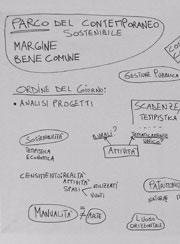 PARCO DEL CONTEMPORANEO
SOSTENIBILE
MARGINE
BENE COMUNE
GESTIONE PUBBLICA
ORDINE DEL GIORNO:
• ANALISI PROGETTI
SCADENZE,
TEMPISTICA
SOSTENIBILITÀ
TEMPISTICA
ECONOMICA
?
TEMATICAMENTE
ATTIVITÀ
CENSIMENTO REALTÀ
ATTIVITÀ
SPAZI
UTILIZZATI
VUOTI
MANUALITÀ ≠ ARTE
LUOGO
ORIZZONTALE